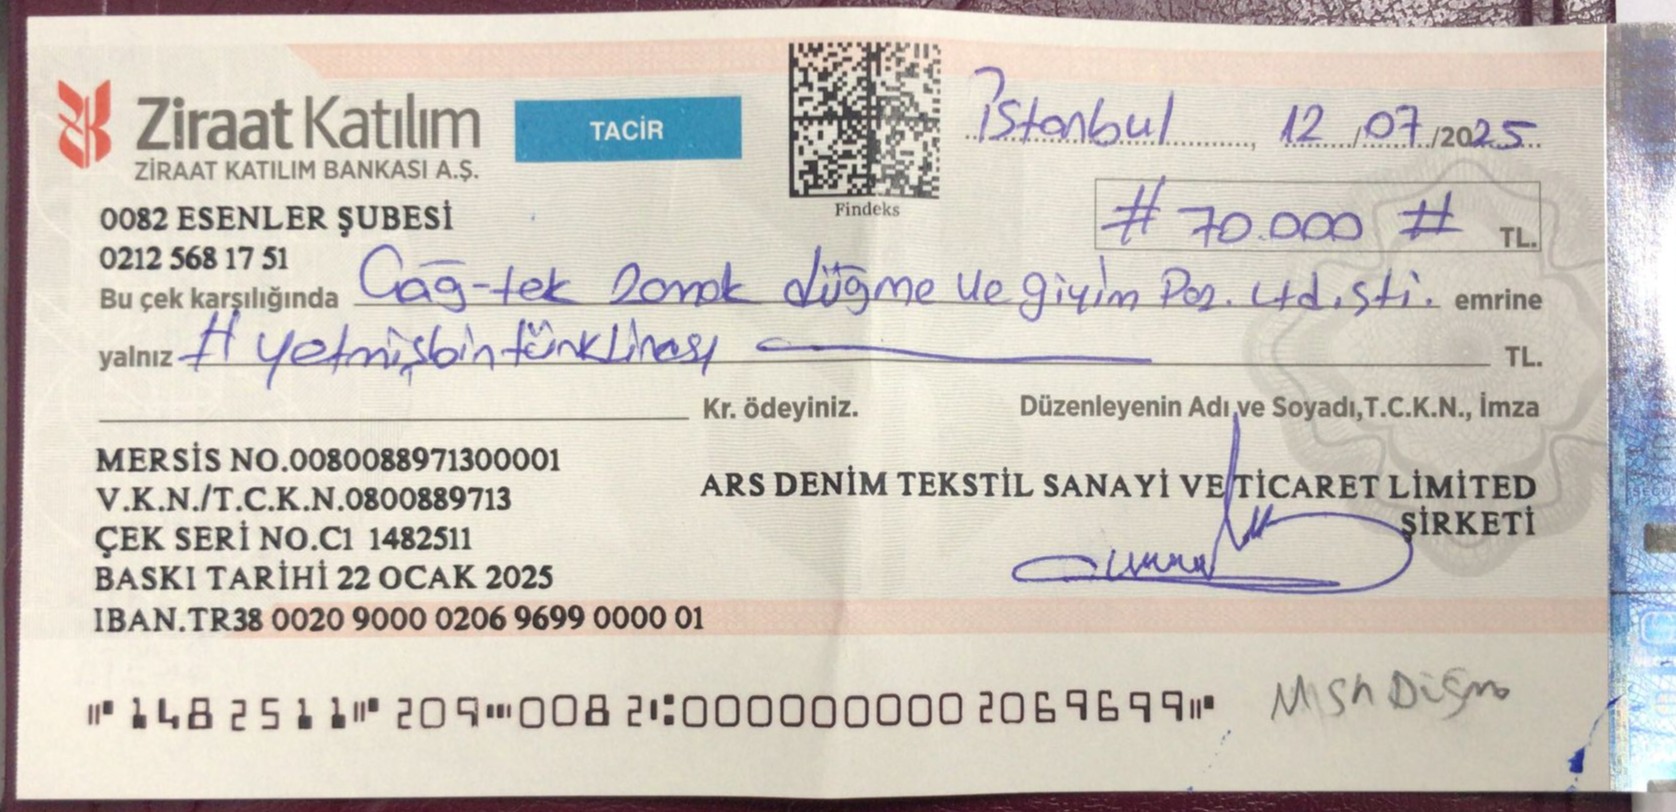 Ziraat Katılım
ZİRAAT KATILIM BANKASI A.Ş.
TACİR
Findeks
İstanbul, 12/07/2025
0082 ESENLER ŞUBESİ
# 70.000 # TL.
0212 568 17 51
Bu çek karşılığında Çağ-tek düğme ve giyim Paz. Ltd. şti. emrine
yalnız # yetmişbintürklirası TL.
Kr. ödeyiniz.
Düzenleyenin Adı ve Soyadı,T.C.K.N., İmza
MERSİS NO.0080088971300001
V.K.N./T.C.K.N.0800889713
ÇEK SERİ NO.C1 1482511
BASKI TARİHİ 22 OCAK 2025
IBAN.TR38 0020 9000 0206 9699 0000 01
ARS DENİM TEKSTİL SANAYİ VE TİCARET LİMİTED
ŞİRKETİ
⑈1482511⑈ 209⑉0082⑆0000000002069699⑈